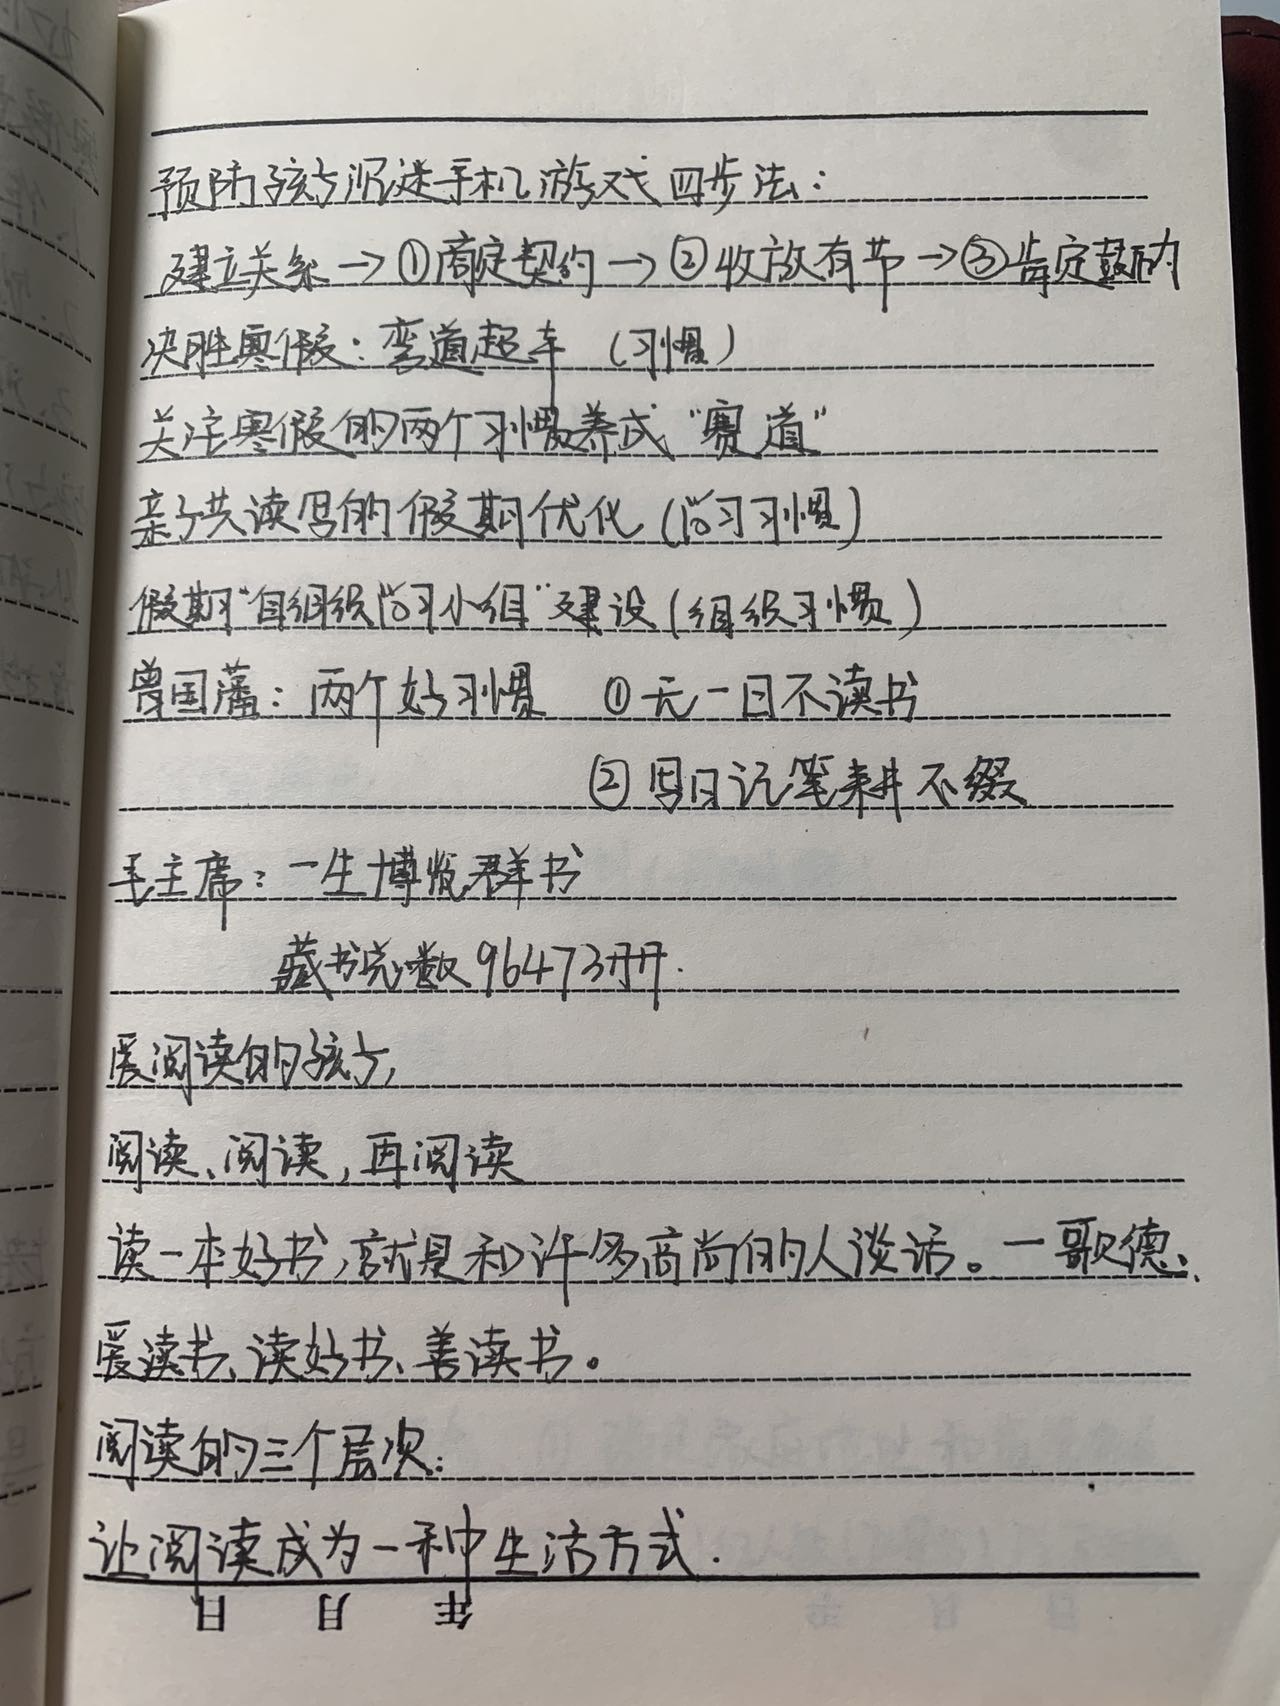 预防孩子沉迷手机游戏四步法：
建立关系→①商定契约→②收放有节→③肯定鼓励
决胜寒假：弯道超车（习惯）
关注寒假的两个习惯养成“赛道”
亲子共读写的假期优化（学习习惯）
假期“自组织学习小组”建设（组织习惯）
曾国藩：两个好习惯 ①无一日不读书
②写日记笔耕不缀
毛主席：一生博览群书
藏书总数96473册.
爱阅读的孩子,
阅读、阅读,再阅读
读一本好书,就是和许多高尚的人谈话。一歌德、
爱读书、读好书、善读书。
阅读的三个层次:
让阅读成为一种生活方式.
年 月 日